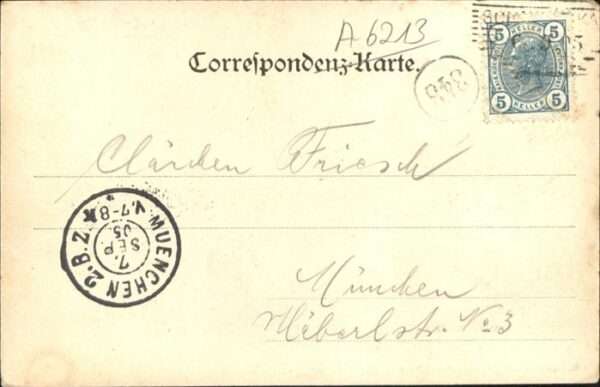 A 6213
Correspondenz-Karte.
5 5
HELLER
5 5
HELLER
348
Clärchen Friesch
MUENCHEN 2.B.Z.
V.7-8
7.
SEP
05
München
No 3